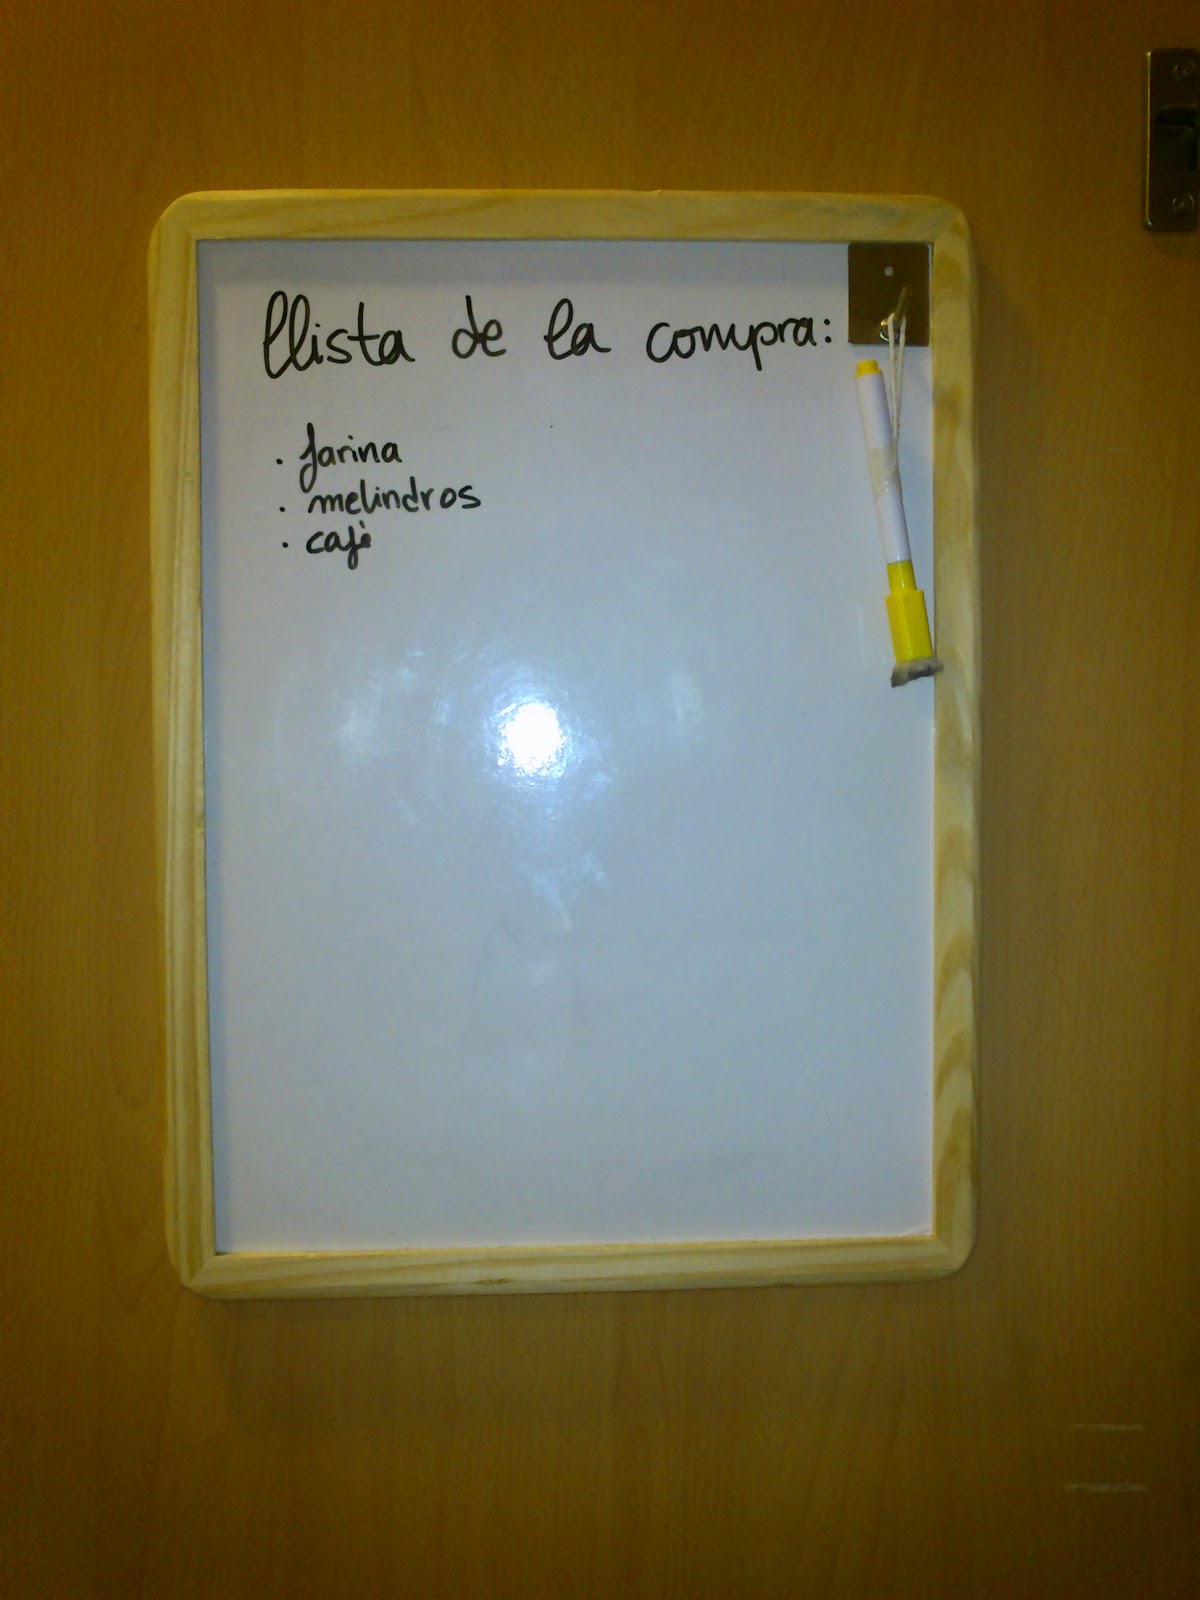 llista de la compra:
· farina
· melindros
· cafè